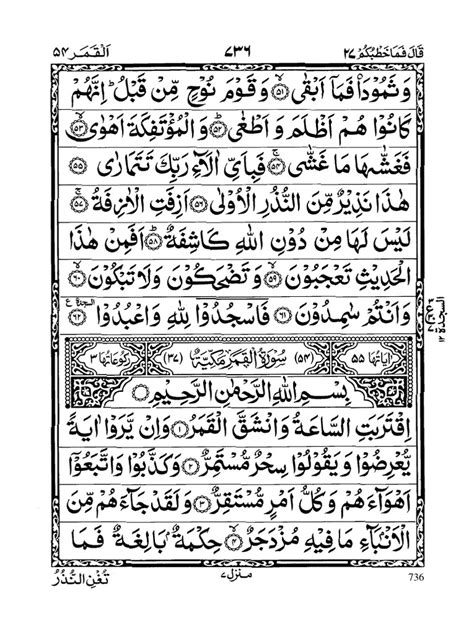 قَالَ فَمَا خَطْبُكُمْ ٢٧ ٧٣٦ اَلْقَمَر ٥٤
وَثَمُوْدَا۟ فَمَاۤ اَبْقٰى ۙ‏﴿۵۱﴾ وَقَوْمَ نُوْحٍ مِّنْ قَبْلُ ؕ اِنَّهُمْ
كَانُوْا هُمْ اَظْلَمَ وَاَطْغٰى ؕ‏﴿۵۲﴾ وَالْمُؤْتَفِكَةَ اَهْوٰى ۙ‏﴿۵۳﴾
فَغَشّٰٮهَا مَا غَشّٰى ۚ‏﴿۵۴﴾ فَبِاَىِّ اٰلَاۤءِ رَبِّكَ تَتَمَارٰى‏﴿۵۵﴾
هٰذَا نَذِيْرٌ مِّنَ النُّذُرِ الْاُوْلٰى‏﴿۵۶﴾ اَزِفَتِ الْاٰزِفَةُ ۚ‏﴿۵۷﴾
لَيْسَ لَهَا مِنْ دُوْنِ اللّٰهِ كَاشِفَةٌ ؕ‏﴿۵۸﴾ اَفَمِنْ هٰذَا
الْحَدِيْثِ تَعْجَبُوْنَ ۙ‏﴿۵۹﴾ وَتَضْحَكُوْنَ وَلَا تَبْكُوْنَ ۙ‏﴿۶۰﴾
وَاَنْتُمْ سٰمِدُوْنَ‏﴿۶۱﴾ فَاسْجُدُوْا لِلّٰهِ وَاعْبُدُوْا‏﴿۶۲﴾
السجدة ١٢
اٰيَاتُهَا ٥٥ (٥٤) سُوْرَةُ الْقَمَرِ مَكِّيَّةٌ (٣٧) رُكُوْعَاتُهَا ٣
بِسْمِ اللّٰهِ الرَّحْمٰنِ الرَّحِيْمِ
اِقْتَرَبَتِ السَّاعَةُ وَانْشَقَّ الْقَمَرُ‏﴿۱﴾ وَاِنْ يَّرَوْا اٰيَةً
يُّعْرِضُوْا وَيَقُوْلُوْا سِحْرٌ مُّسْتَمِرٌّ‏﴿۲﴾ وَكَذَّبُوْا وَاتَّبَعُوْۤا
اَهْوَآءَهُمْ وَكُلُّ اَمْرٍ مُّسْتَقِرٌّ‏﴿۳﴾ وَلَقَدْ جَآءَهُمْ مِّنَ
الْاَنْۢبَآءِ مَا فِيْهِ مُزْدَجَرٌ ۙ‏﴿۴﴾ حِكْمَةٌۢ بَالِغَةٌ فَمَا
تُغْنِ النُّذُرُ منزل ٧ 736